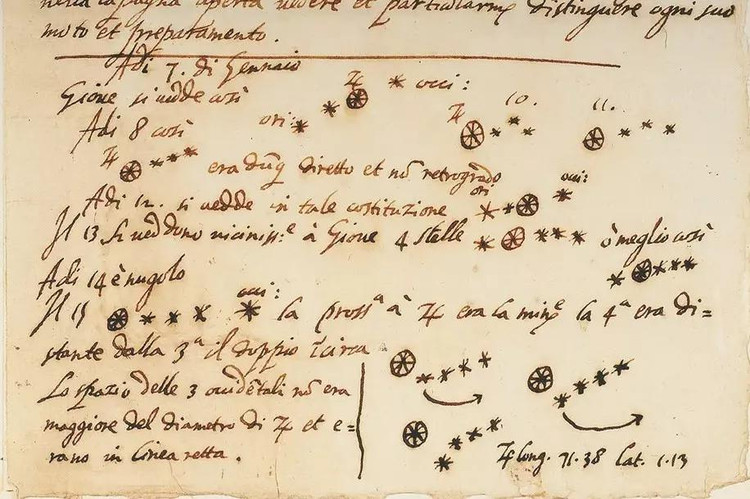 nella lapagna aperta uedere et particolarmẽ distinguere ogni suo
moto et preparamento.
Adi 7. di Gennaio
Gioue si uedde così ♃ occi:
Adi 8 così ori: ♃ 10. 11.
♃ era dũq̃ diretto et nõ retrogrado
Adi 12. si uedde in tale costituzione ori occi:
Il 13 si ueddono uiciniss.e à Gioue 4 stelle ò meglio così
Adi 14 è nugolo
Il 15 occi: la pross.a à ♃ era la min.e la 4.a era di=
stante dalla 3.a il doppio ĩcirca
Lo spazio delle 3 occidẽtali nõ era
maggiore del diametro di ♃ et e=
rano in linea retta.
♃ long. 71.38 lat. 1.13